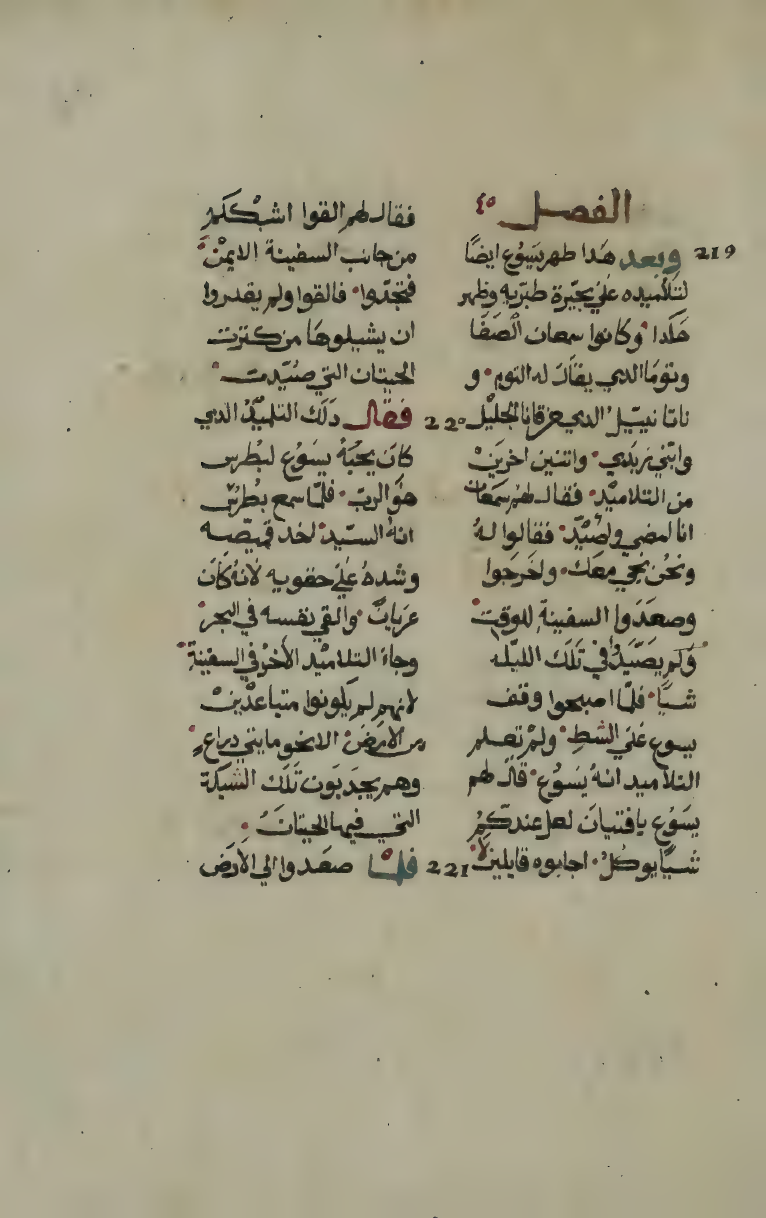 الفصل ٤٥
219 وبعد هَدا طهر يسَوُع ايضًا
لتلاميده عَلي بحيَرة طبَريه وظهر
هَلَدا وكانوا سمعان الصَفَا
وتومَا الدي يقاَل له التوم و
ناتا نييَل الدي من قانا الجليْل
وابْني زبَدي واتنين اخريَنْ
من التلاميْد فقالـ لهم سَمعَان
انا امضي واصْيّد فقالوا لهُ
ونحُن نجي معَك واخَرجَوا
وصعَدَوا السفينةِ للوقت
وَلم يصَيَدوُا في تَلَك الليّله
شيَّا فلمّا اصبحوا وقف
يسوع عَلي الشَطِ ولمْ تعـلم
التلاميد انهُ يسَوُع قالَ لهم
يسَوُع يا فتيانَ لعل عندَكمُ
شَـيًا يوكلْ اجابوه قايلينْ لا
فقالـ لهم القوا اشبْكَكَمُ
من جانب السفينة الايمنْ
فتجَدّوا فالقوا ولم يقدروا
ان يشيلوهَا من كترت
الحيتان التي صيَّدت
220 فقال دَلَك التلميْد الدي
كانَ يحبَهُ يسَوُع لبُطرس
هوَ الربّ فلمّا سمع بطرَسّ
انهُ السيّد اخد قميّصه
وشدهُ عَليَ حقويه لانهُ كَانَ
عرَيانٌ والقي نفسه في البحرْ
وجاءَ التلاميْد الأخرْ في السفينةِ
لانهم لم يَكونوا متباعدْينْ
من الارَضْ الا نحو مايتي دراعٍ
وهم يجدَبَون تَلَك الشبَكة
التي فيها الحيتانَ
221 فلمّا صعَدوا الي الأرَض